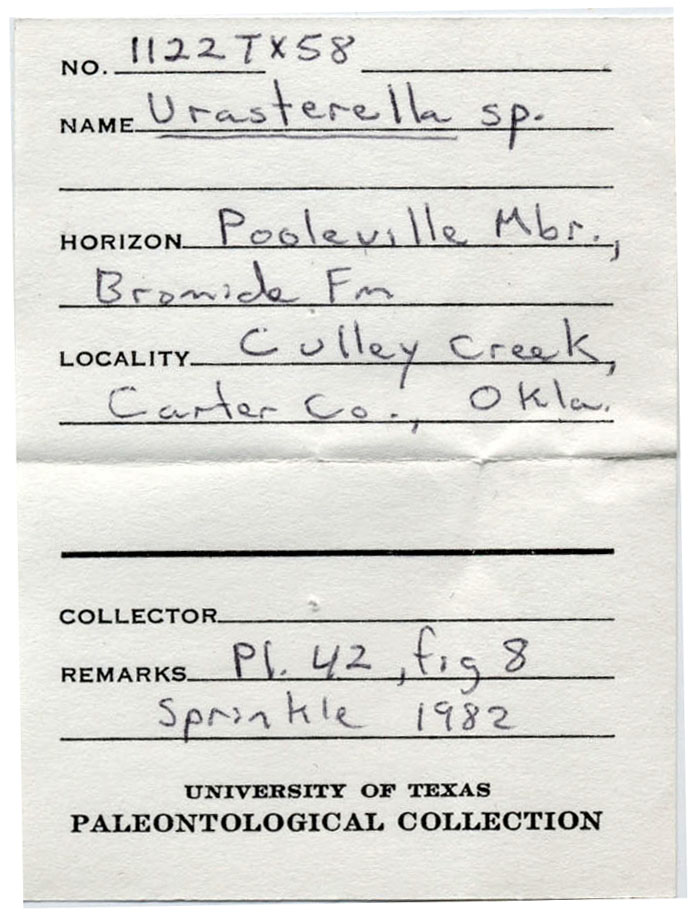 NO. 1122TX58
NAME Urasterella sp.
HORIZON Pooleville Mbr.,
Bromide Fm
LOCALITY Culley Creek,
Carter Co., Okla.
COLLECTOR
REMARKS Pl. 42, fig 8
Sprinkle 1982
UNIVERSITY OF TEXAS
PALEONTOLOGICAL COLLECTION